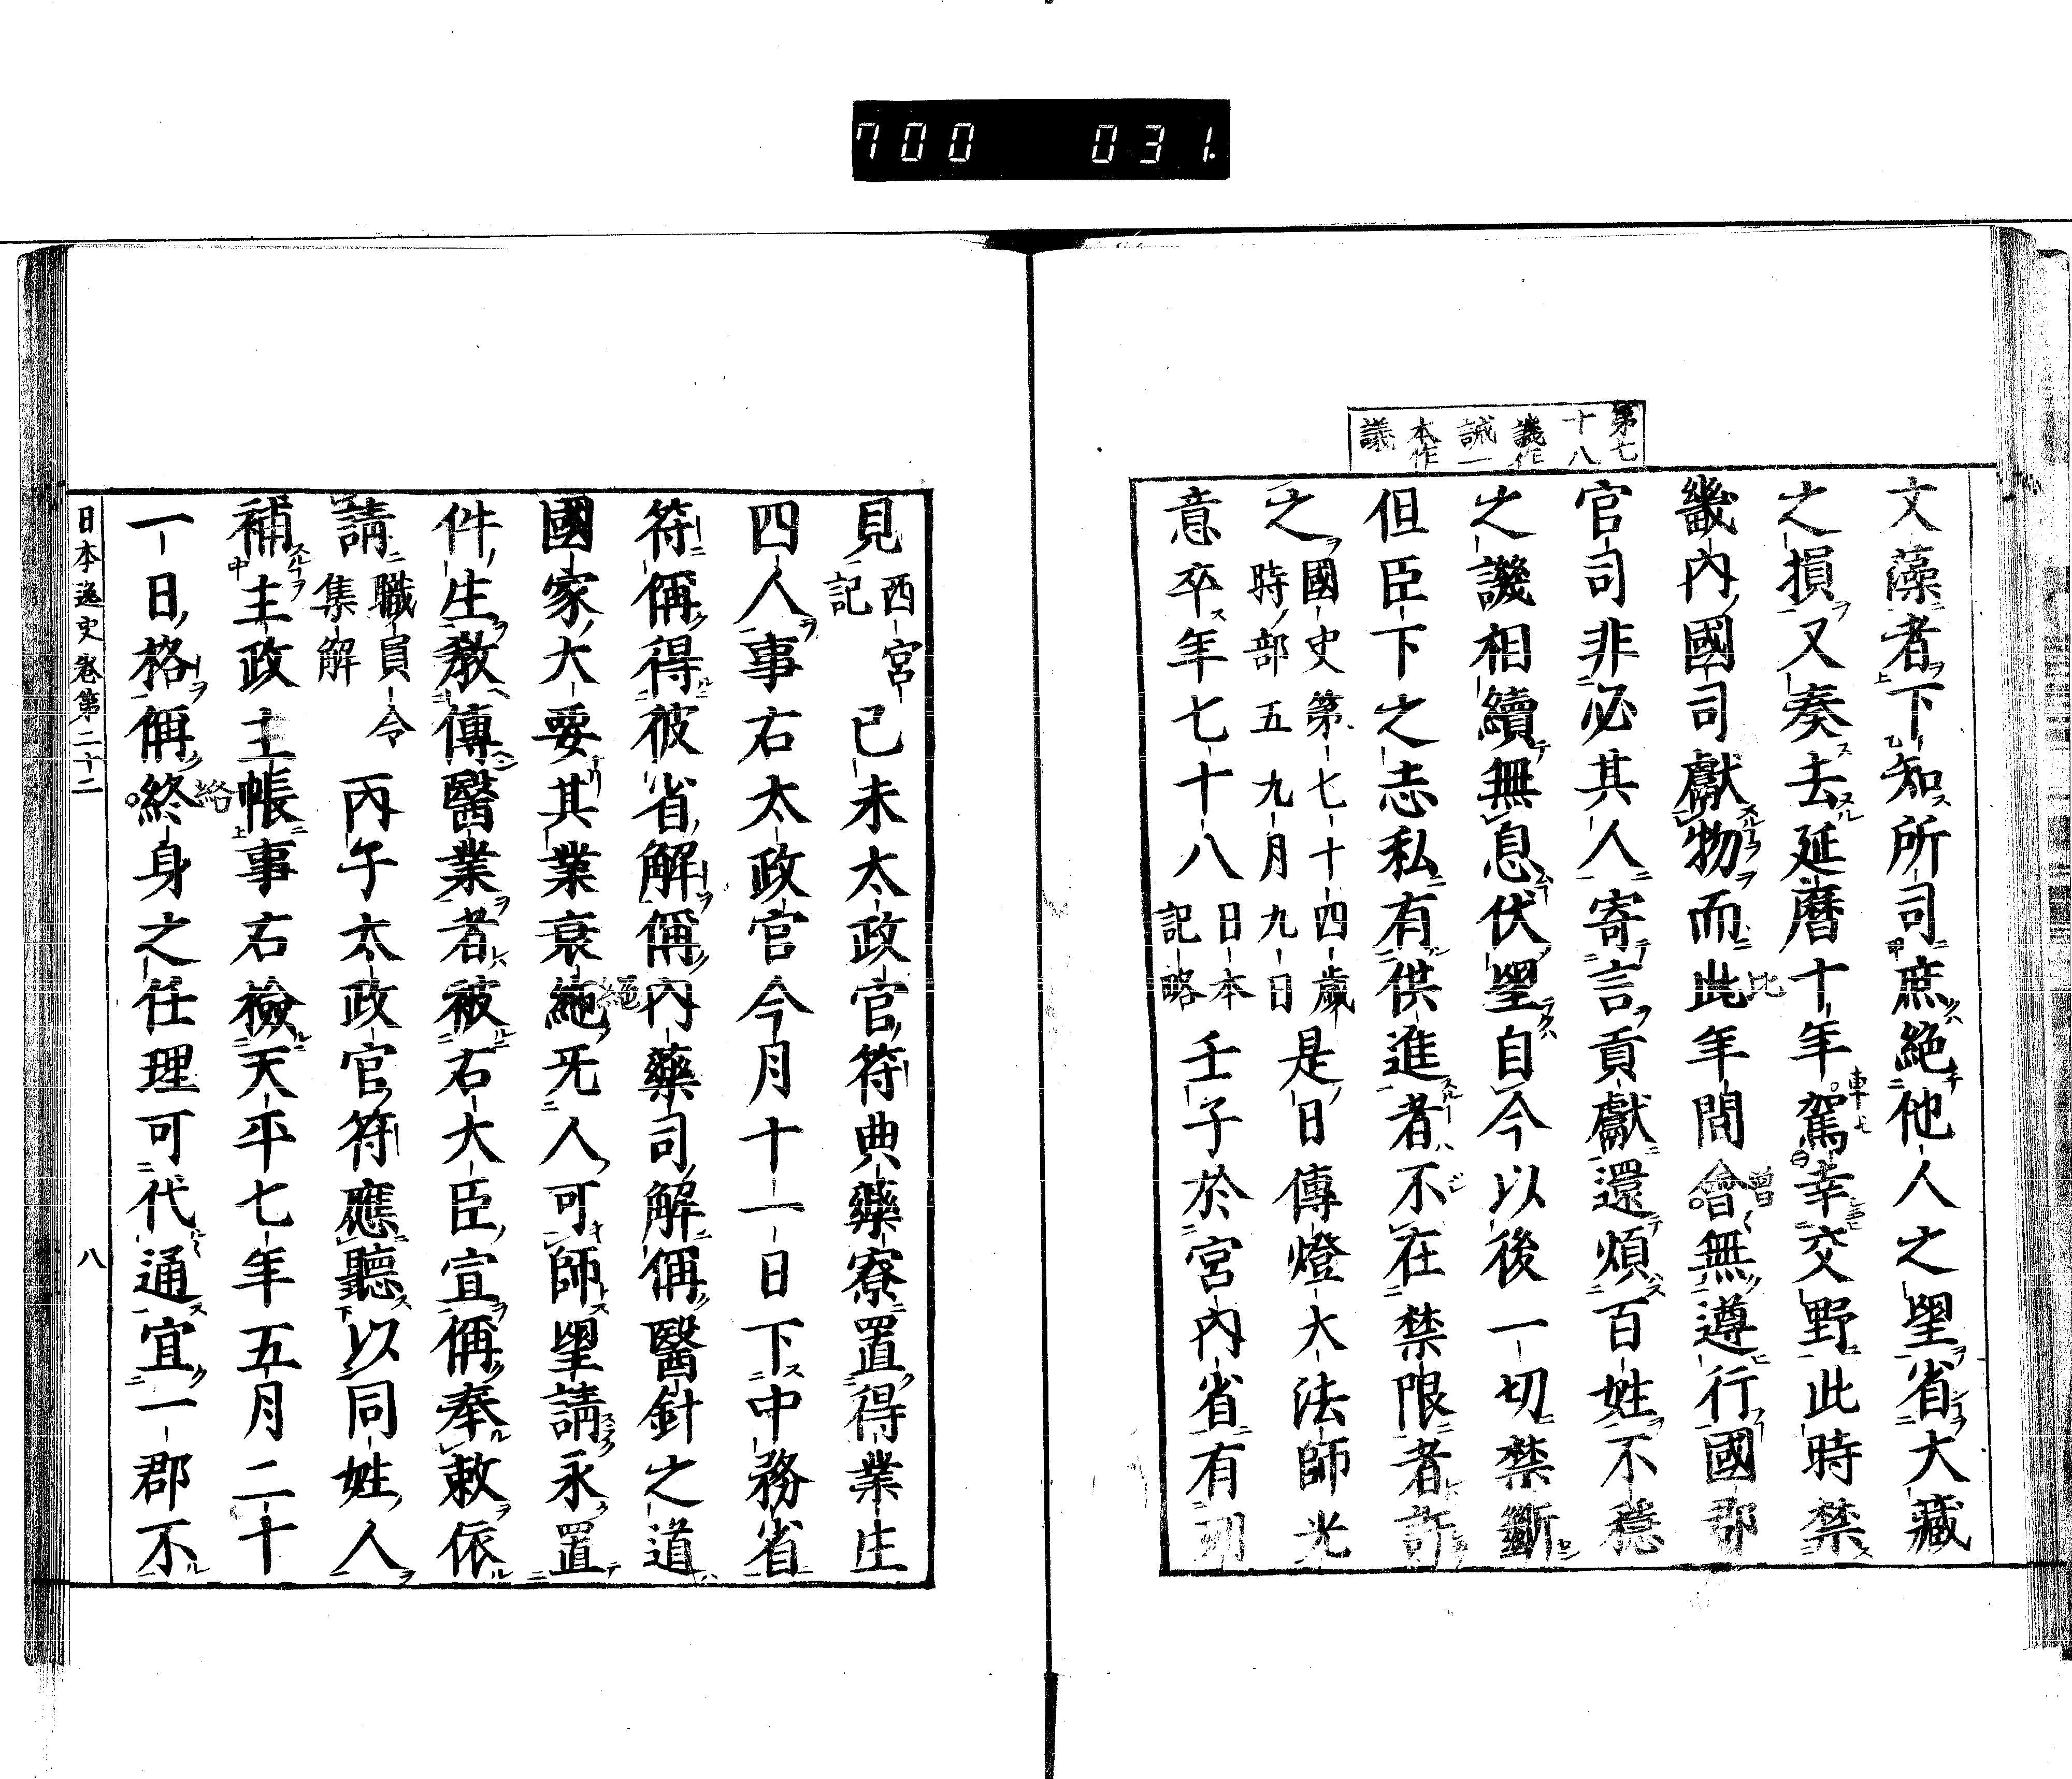 700 031.
第七
十八
譏作
誡一
本作
議
文藻者下知所司庶絶他人之望省大藏
之損又奏去延暦十年駕幸交野此時禁
畿内國司獻物而此年間會無遵行國郡
官司非必其人寄言貢獻還煩百姓不穏
之譏相續無息伏望自今以後一切禁斷
但臣下之志私有供進者不在禁限者許
之國史第七十四歳時部五九月九日是日傳燈大法師光
意卒年七十八日本記略壬子於宮内省有
見西宮記己未太政官符典藥寮置得業生
四人事右太政官今月十一日下中務省
符偁得彼省解偁内藥司解偁醫針之道
國家大要其業衰絶旡人可師望請永置
件生教傳醫業者被右大臣宣偁奉敕依
請職員令集解丙午太政官符應聽以同姓人
補主政主帳事右檢天平七年五月二十
一日格偁終身之任理可代通宜一郡不
日本逸史卷第二十二 八